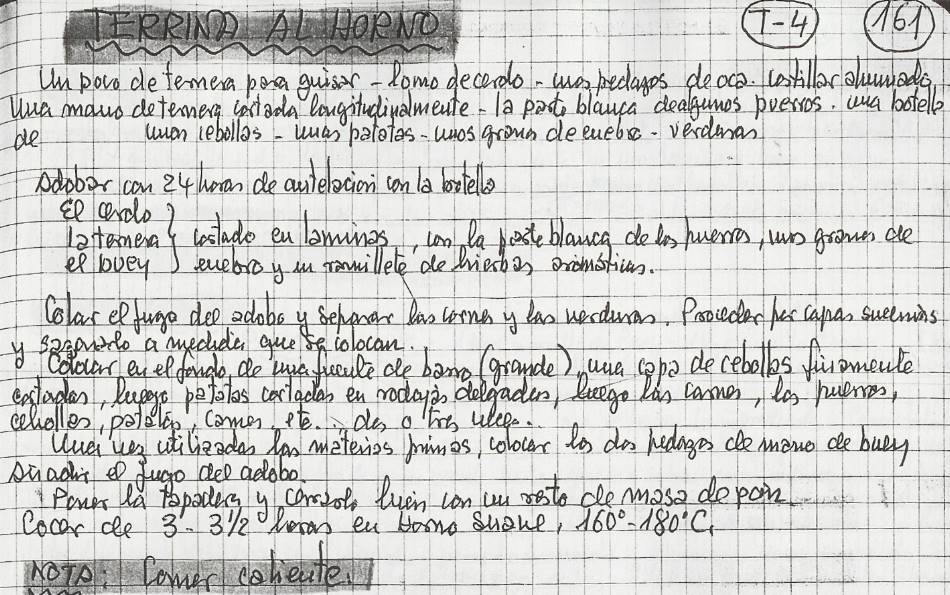 TERRINA AL HORNO
T-4
161
Un poco de ternera para guisar - lomo de cerdo - unos pedazos de oca. costillar ahumado
Una mano de ternera cortada longitudinalmente - la parte blanca de algunos puerros. una botella
de unas cebollas - unas patatas - unos granos de enebro - verduras
Adobar con 24 horas de antelacion con la botella
El cerdo
la ternera } cortado en laminas, con la parte blanca de los puerros, unos granos de
el buey } enebro y un ramillete de hierbas aromáticas.
Colar el jugo del adobo y separar las carnes y las verduras. Proceder por capas sucesivas
y sazonarlo a medida que se colocan.
Colocar en el fondo de una fuente de barro (grande), una capa de cebollas finamente
cortadas, luego patatas cortadas en rodajas delgadas, luego las carnes, los puerros,
cebollas, patatas, carnes, etc... dos o tres veces.
Una vez utilizadas las materias primas, colocar los dos pedazos de mano de buey
Añadir el jugo del adobo.
Poner la tapadera y cerrarlo bien con un resto de masa de pan
Cocer de 3 - 3 1/2 horas en Horno suave, 160°-180°C,
NOTA: Comer caliente.